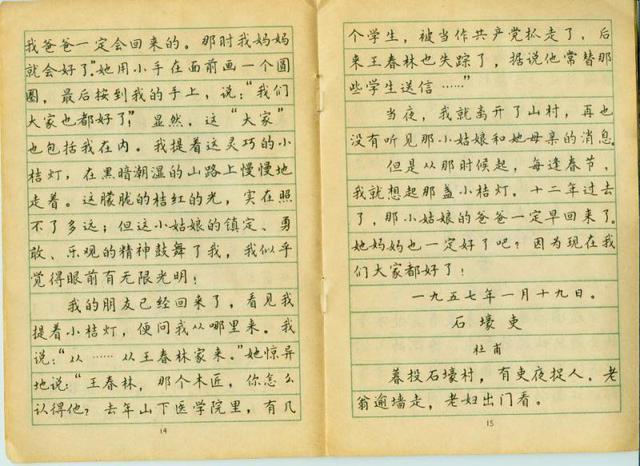 我爸爸一定会回来的。那时我妈妈
就会好了”。她用小手在面前画一个圆
圈，最后按到我的手上，说：“我们
大家也都好了！”显然，这“大家”
也包括我在内。我提着这灵巧的小
桔灯，在黑暗潮湿的山路上慢慢地
走着。这朦胧的桔红的光，实在照
不了多远；但这小姑娘的镇定、勇
敢、乐观的精神鼓舞了我，我似乎
觉得眼前有无限光明！
我的朋友已经回来了，看见我
提着小桔灯，便问我从哪里来。我
说：“从……从王春林家来。”她惊异
地说：“王春林，那个木匠，你怎么
认得他？去年山下医学院里，有几
14
个学生，被当作共产党抓走了，后
来王春林也失踪了，据说他常替那
些学生送信……”
当夜，我就离开了山村，再也
没有听见那小姑娘和她母亲的消息。
但是从那时候起，每逢春节，
我就想起那盏小桔灯。十二年过去
了，那小姑娘的爸爸一定早回来了。
她妈妈也一定好了吧？因为现在我
们大家都好了！
一九五七年一月十九日。
石壕吏
杜甫
暮投石壕村，有吏夜捉人。老
翁逾墙走，老妇出门看。
15